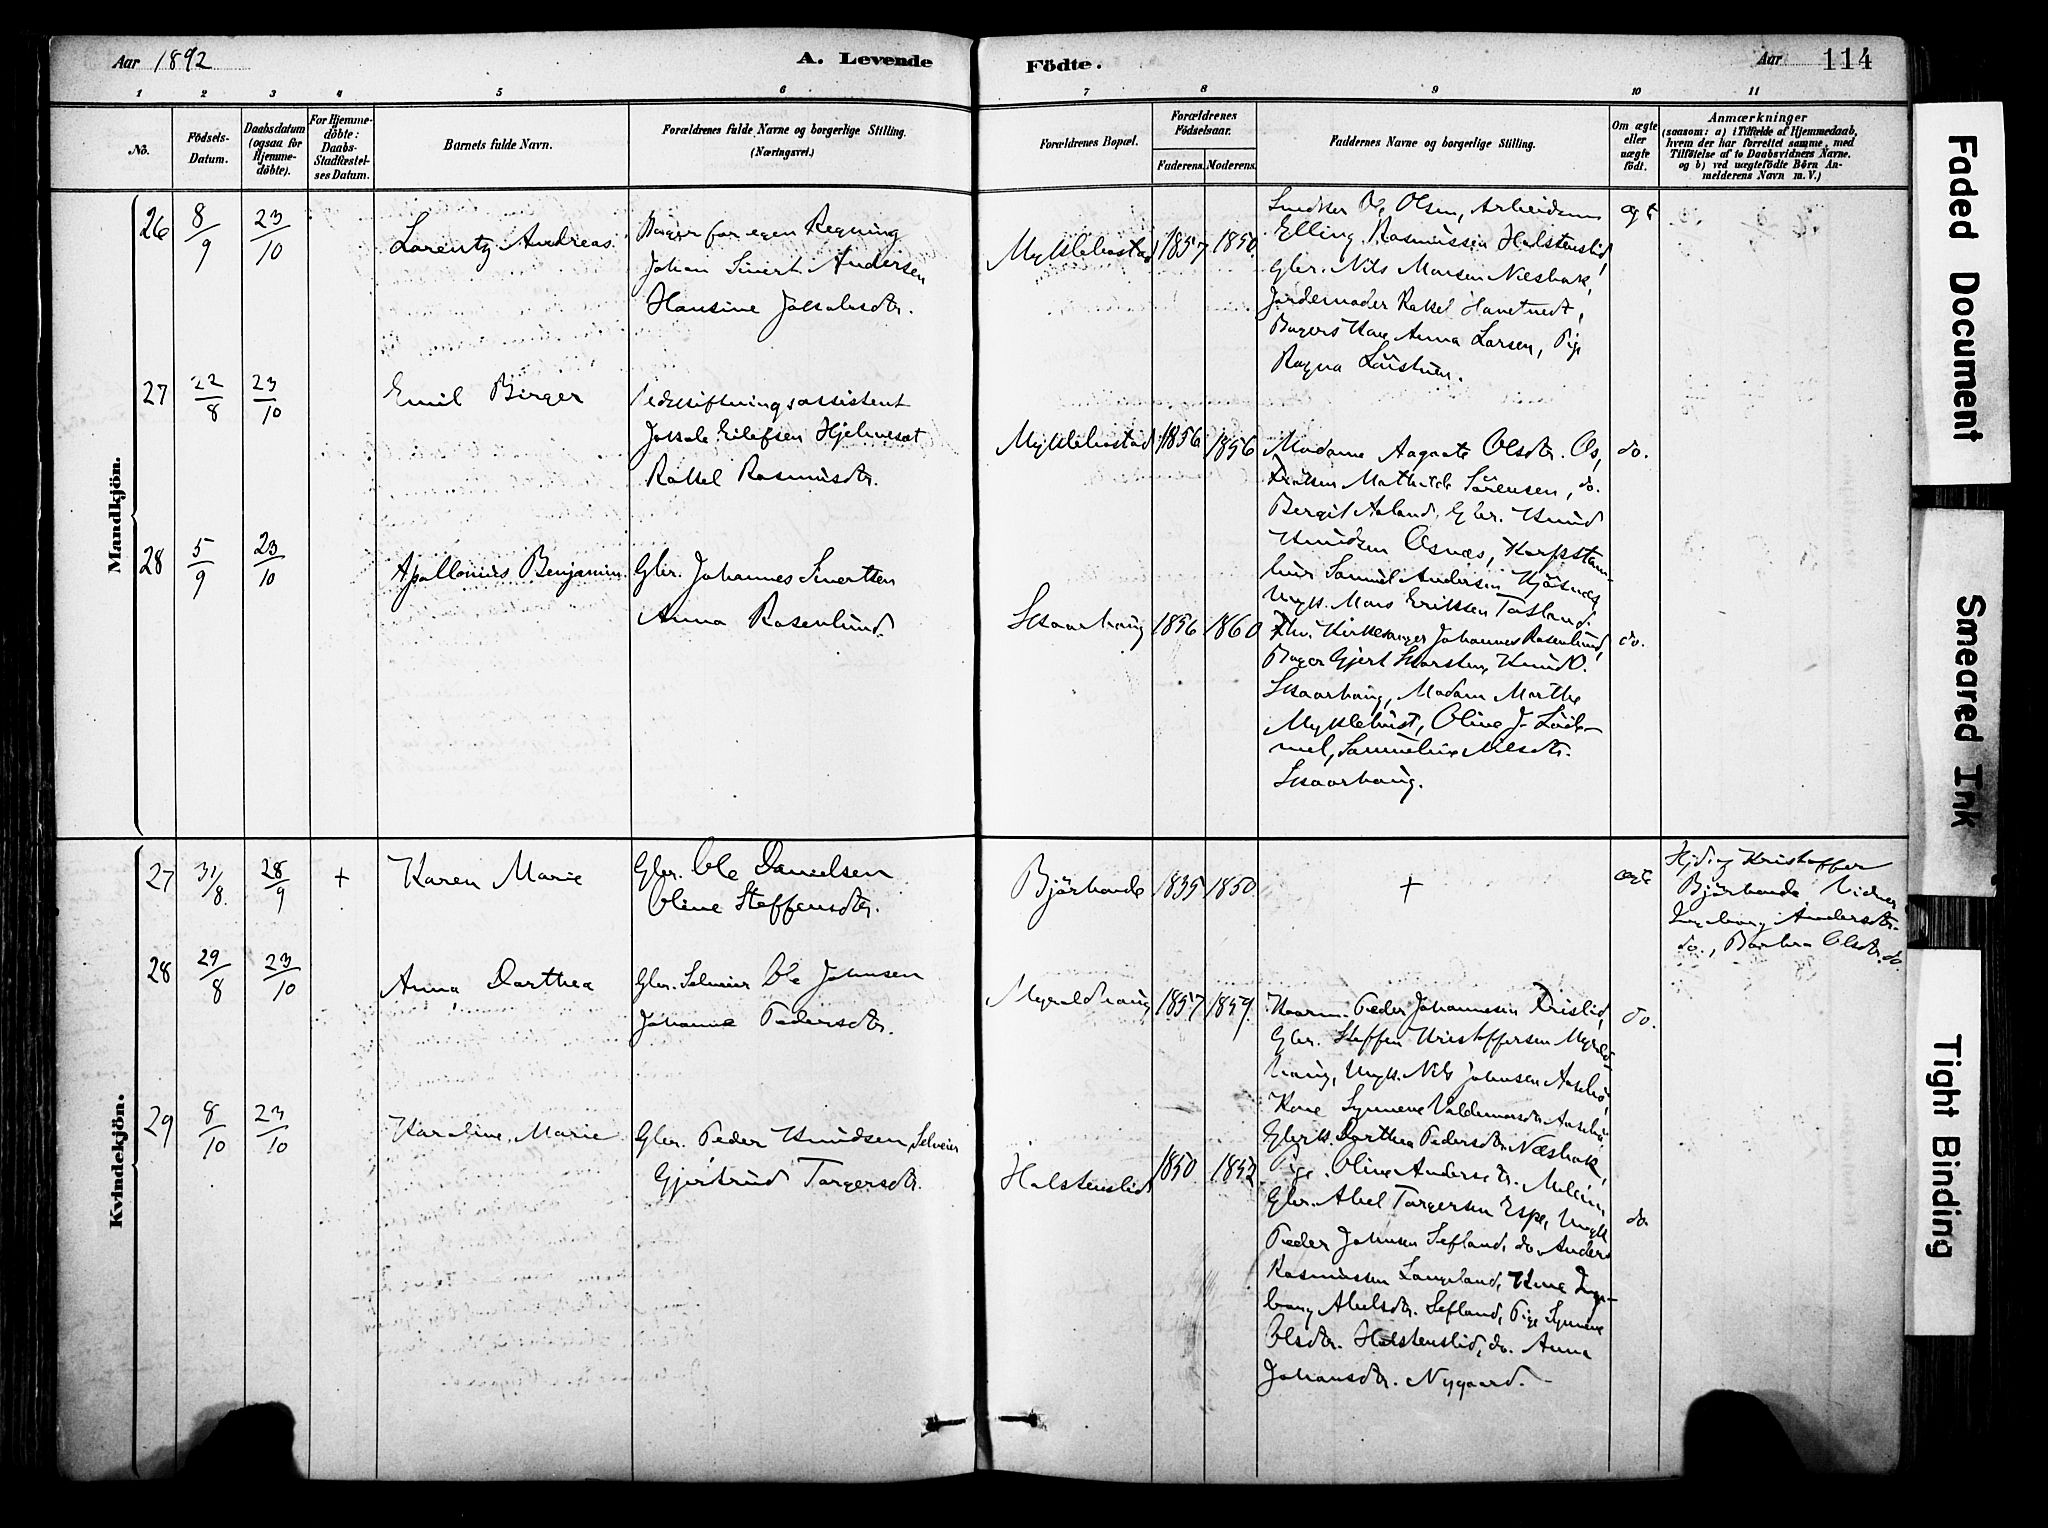 Aar 1892
A. Levende
Födte.
Aar
114
1 2 3 4 5 6 7 8 9 10 11
No.
Födsels-
Datum.
Daabsdatum
(ogsaa for
Hjemme-
döbte).
For Hjemme-
döbte:
Daabs-
Stadfæstel-
ses Datum.
Barnets fulde Navn.
Forældrenes fulde Navne og borgerlige Stilling.
(Næringsvei.)
Forældrenes Bopæl.
Forældrenes
Födselsaar.
Faderens. Moderens.
Faddernes Navne og borgerlige Stilling.
Om ægte
eller
uægte
födt.
Anmærkninger
(saasom: a) i Tilfælde af Hjemmedaab,
hvem der har forrettet samme, med
Tilföielse af to Daabsvidners Navne.
og b) ved uægtefödte Börn An-
melderens Navn m. V.)
Mandkjön.
26 8/9 23/10
Lorentz Andreas
Bager for egen Regning
Johan Sivert Andersen
Hansine Jakobsdtr.
Myklebostad 1857 1850.
Ole Olsen, Arbeidsm
Elling Rasmussen Holstenslid,
Gbr. Nils Monsen Næsbak,
Jordemoder Rakel
Bagers Kone Anna Larsen, Pige
Ragna
ægt
27 22/8 23/10
Emil Birger
assistent
Jakob Eilefsen Hjelmeset
Rakel Rasmusdtr.
Myklebostad 1856 1856
Madame Aagaate Olsdtr. Os,
Fröken Mathilde Sörensen, do.
Bergit Aaland, Gbr. Knud
Knudsen Osnæs,
Samuel Andersen
Ungk. Mons Eriksen
do.
28 5/9 23/10
Apollonius Benjamin.
Gbr. Johannes Sivertsen
Anna Rosenlund.
Skaarhaug 1856 1860
Kirkesanger Johannes Rosenlund,
Bager Gjert Knud O.
Skaarhaug, Madam Marthe
Myklebust, Oline J.
Samueline Nilsdtr.
Skaarhaug.
do.
Kvindekjön.
27 31/8. 28/9 +
Karen Marie
Gbr. Ole Danielsen
Oline Steffensdtr.
Björhovde 1835 1850.
+
ægte
Hjd. af Kristoffer
Björhovde, Vidner
Ingeborg Andersdtr.
do., Barbra Olsdtr. do.
28 29/8 23/10
Anna Dorthea
Gbr. Selveier Ole Johnsen
Johanne Pedersdtr.
Myroldhaug 1857 1859.
Peder Johannesen Drislid,
Gbr. Steffen Kristoffersen Myrold
haug, Ungk. Nils Johnsen
Kone Synneve Valdemarsdtr.
Dorthea Pedersdtr. Næsbak,
Pige. Oline Andersdtr.
do.
29 8/10 23/10
Karoline Marie
Gbr. Peder Knudsen, Selveier
Gjertrud Torgersdtr.
Holstenslid 1850. 1852
Gbr. Abel Torgersen Espe, Ungk
Peder Johnsen Sefland, do. Anders
Rasmussen Langeland, Kone Inge-
borg Abelsdtr. Sefland, Pige Synneve
Olsdtr. Holstenslid, do. Anna
Johansdtr. Nygaard.
do.
Faded Document
Smeared Ink
Tight Binding